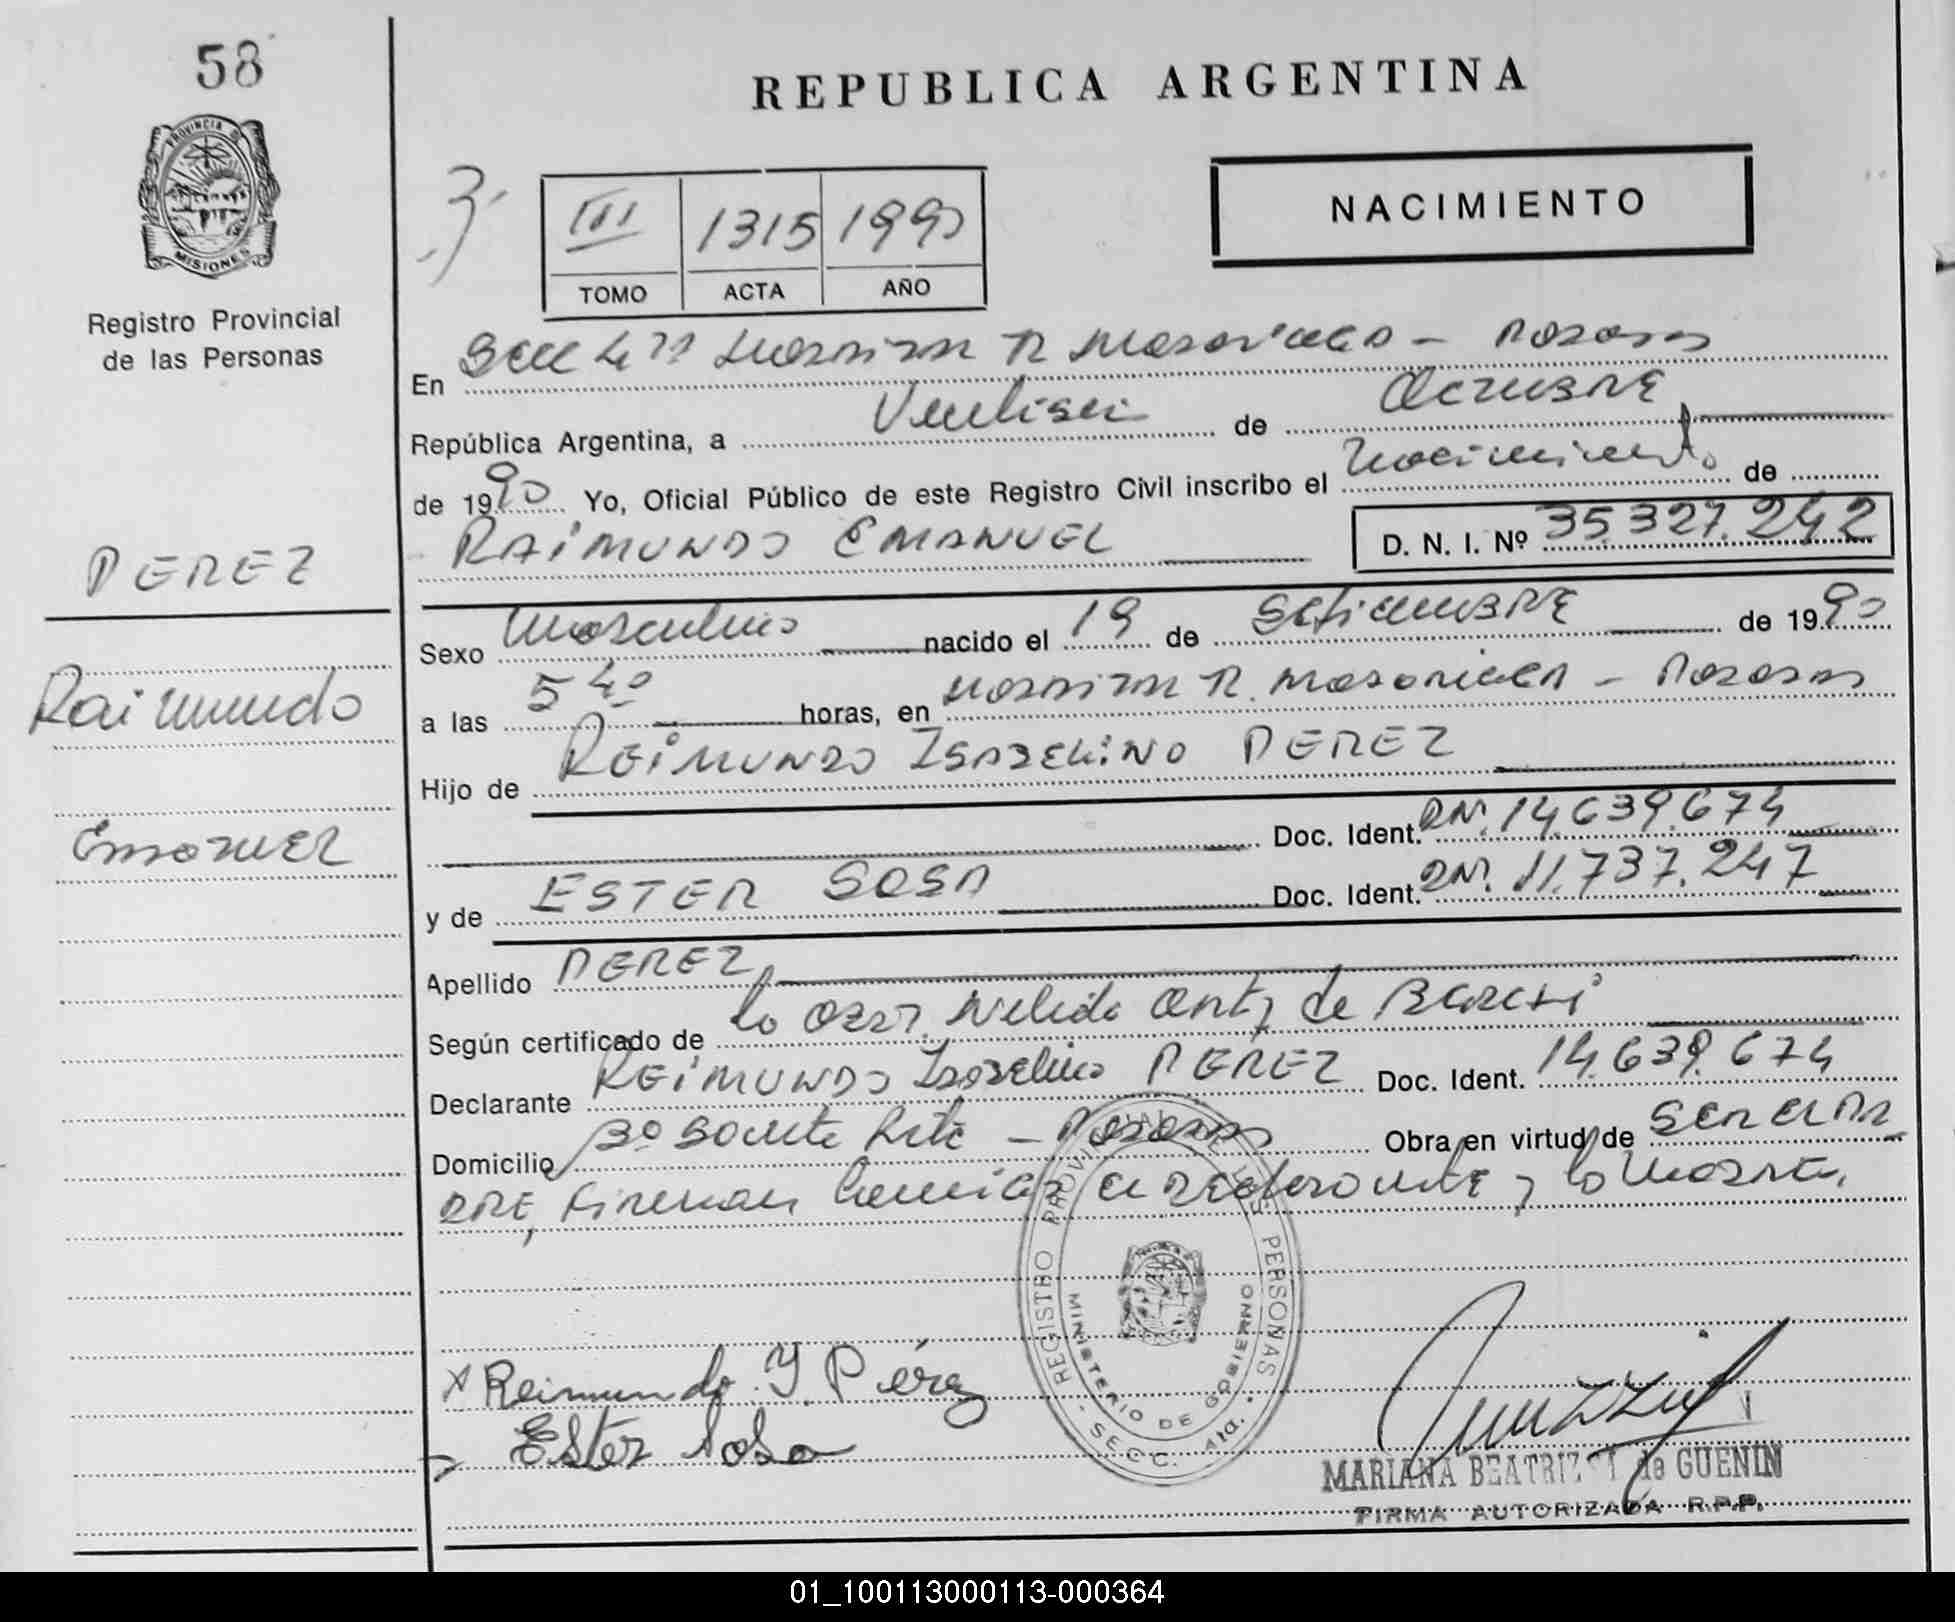 58
REPUBLICA ARGENTINA
PROVINCIA DE
MISIONES
Registro Provincial
de las Personas
3
III 1315 1990
TOMO ACTA AÑO
NACIMIENTO
En Secc 4ta - Posadas
República Argentina, a Veintiseis de Octubre
de 1990 Yo, Oficial Público de este Registro Civil inscribo el nacimiento de
RAIMUNDO EMANUEL D. N. I. Nº 35.327.242
PEREZ
Raimundo
Emanuel
Sexo masculino nacido el 19 de Setiembre de 1990
a las 5 40 horas, en - Posadas
Hijo de REIMUNDO ISABELINO PEREZ
Doc. Ident. DNI. 14.639.674
y de ESTER SOSA Doc. Ident. DNI. 11.737.247
Apellido PEREZ
Según certificado de la Obst. Nelida Ortiz de
Declarante REIMUNDO Isabelino PEREZ Doc. Ident. 14.639.674
Domicilio - Posadas Obra en virtud de SER EL PA
DRE, firman el declarante y la madre.
REGISTRO PROVINCIAL DE LAS PERSONAS
MINISTERIO DE GOBIERNO
- SECC. 4ta. -
x Reimundo Y. Pérez
Ester Sosa
MARIANA BEATRIZ de GUENIN
FIRMA AUTORIZADA R.P.P.
01_100113000113-000364